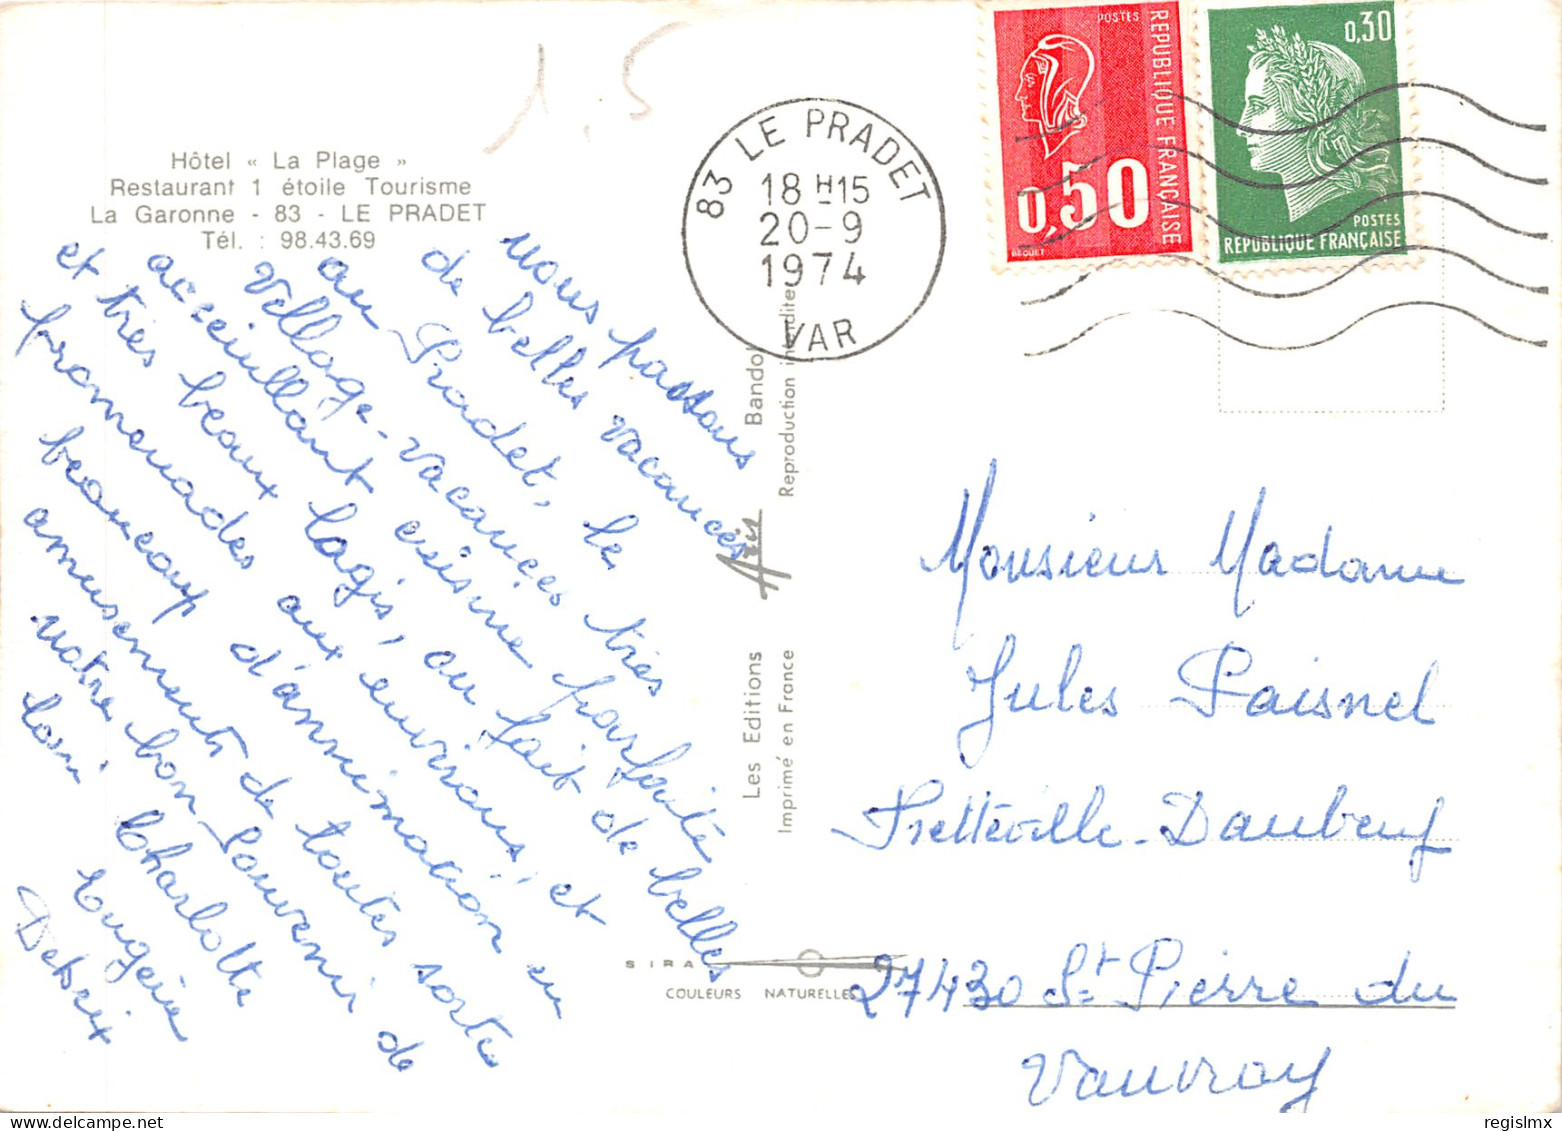 1.5
Hôtel « La Plage »
Restaurant 1 étoile Tourisme
La Garonne - 83 - LE PRADET
Tél. : 98.43.69
83 LE PRADET
18 H 15
20-9
1974
VAR
POSTES
REPUBLIQUE FRANÇAISE
0,50
BEQUET
0,30
POSTES
RÉPUBLIQUE FRANÇAISE
nous passons
de belles vacances
au Pradet, le
Village-vacances très
acceuillant cuisine parfaite
et très beaux logis, au fait de belles
promenades aux environs, et
beaucoup d'annimation en
amusements de toutes sorte
notre bon souvenir de
Charlotte
Eugénie
Les Editions
Bandol
Imprimé en France
Reproduction interdite
SIRA
COULEURS NATURELLES
Monsieur Madame
Jules Paisnel
Fretteville-Daubeuf
27430 St Pierre du
Vauvray
regislmx